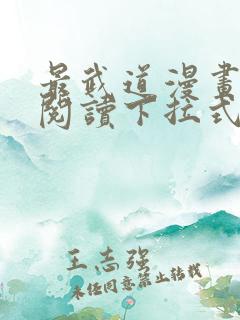 最武道漫畫
閱讀下拉式
王志强
未经同意禁止转载